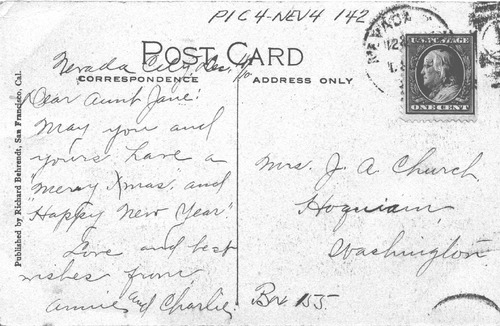 PIC4-NEV4 142
POST CARD
CORRESPONDENCE
ADDRESS ONLY
U.S. POSTAGE
ONE CENT
Nevada City, Dec.
Dear Aunt Jane:
May you and
yours have a
"merry Xmas" and
"Happy New Year."
Love and best
wishes from
Annie and Charlie.
Mrs. J. A. Church
Hoquiam,
Washington
Box 155.
Published by Richard Behrendt, San Francisco, Cal.